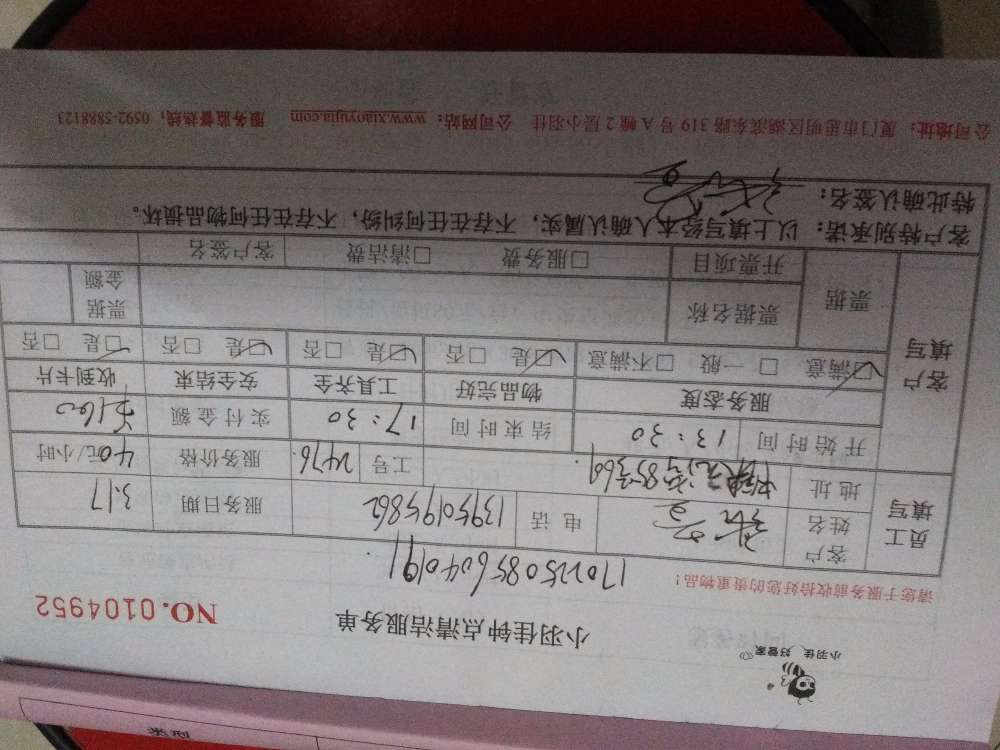 小羽佳 好管家
小羽佳钟点清洁服务单
NO.0104952
请您于服务前收拾好您的贵重物品!
员工填写
客户姓名
电话 13950195862
服务日期 3.17
地址
工号 2476
服务价格 40元/小时
客户填写
开始时间 13:30
结束时间 17:30
实付金额 160
服务态度 物品完好 工具齐全 安全结束 收到卡片
☑满意 □一般 □不满意 ☑是 □否 ☑是 □否 ☑是 □否 ☑是 □否
票据 票据名称 票据金额
开票项目 □服务费 □清洁费 客户签名
客户特别承诺:以上填写经本人确认属实,不存在任何纠纷,不存在任何物品损坏。
特此确认签名:
公司地址:厦门市思明区湖滨东路 319 号 A 幢 2 层小羽佳 公司网站:www.xiaoyujia.com 服务监督热线:0592-5888123
类型